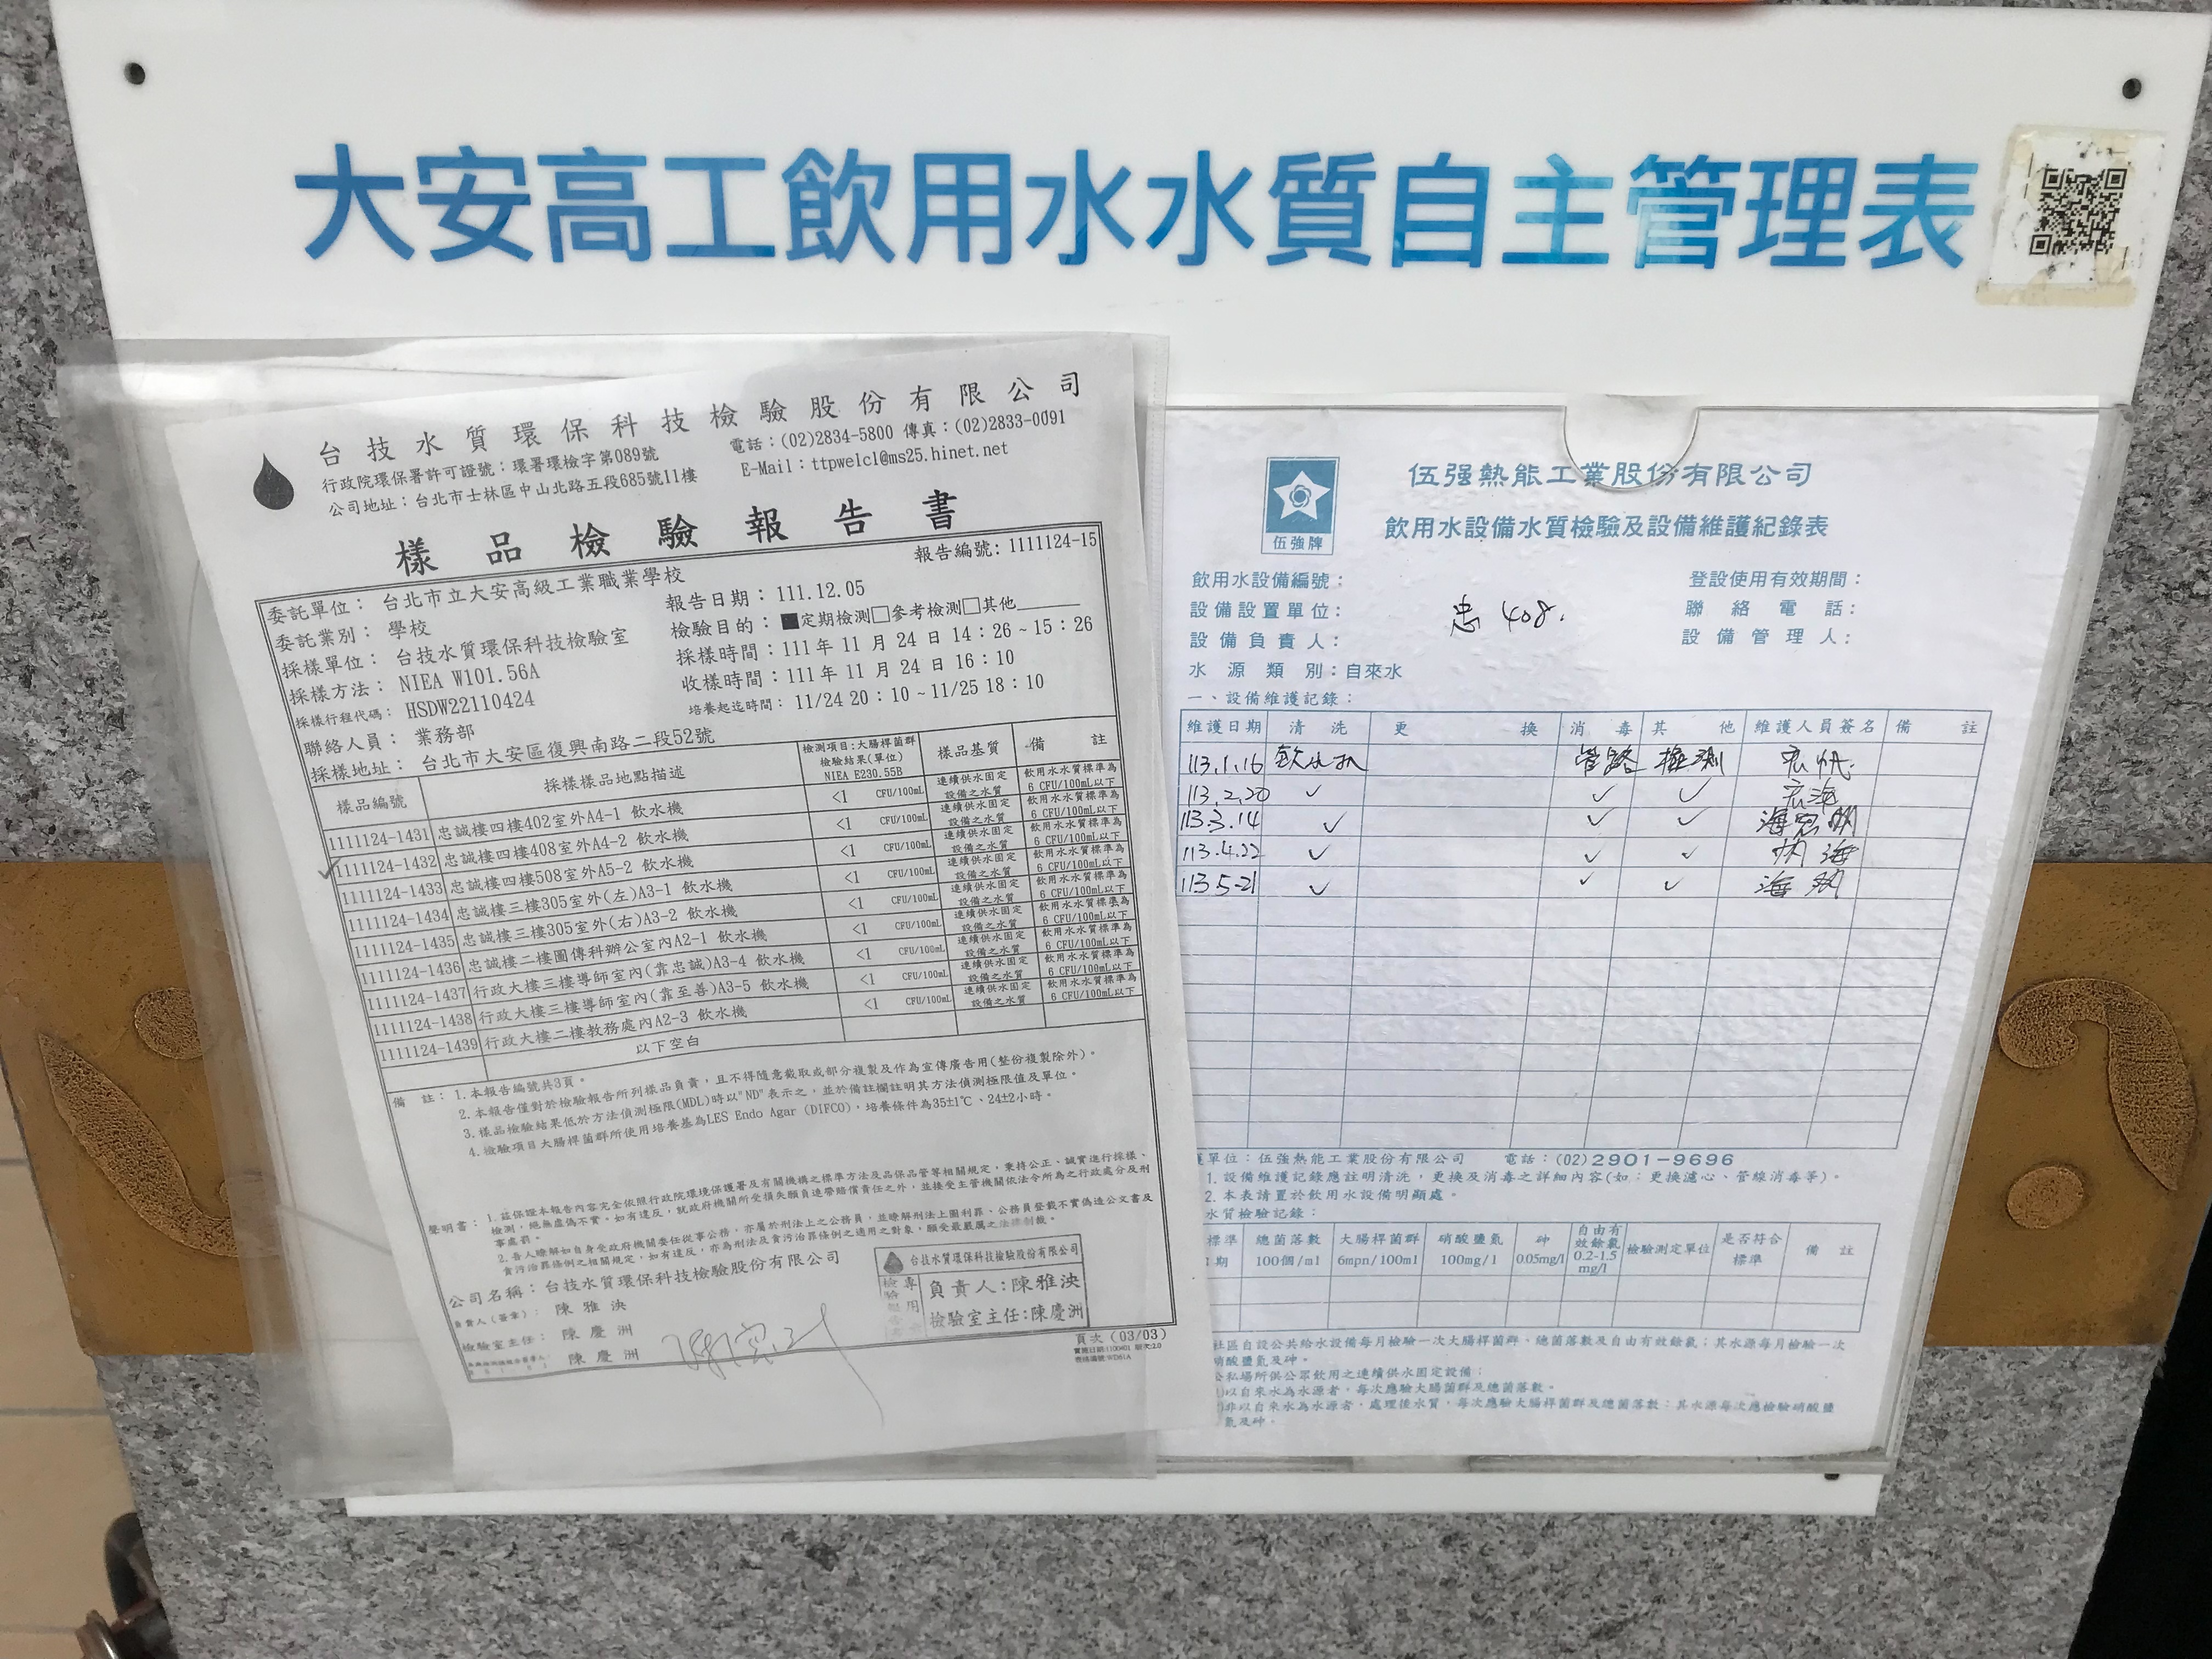 大安高工飲用水水質自主管理表
台技水質環保科技檢驗股份有限公司
行政院環保署許可證號：環署環檢字第089號
電話：(02)2834-5800 傳真：(02)2833-0091
公司地址：台北市士林區中山北路五段685號11樓
E-Mail：ttpwelcl@ms25.hinet.net
樣品檢驗報告書
報告編號: 1111124-15
委託單位： 台北市立大安高級工業職業學校
報告日期： 111.12.05
委託業別： 學校
檢驗目的：■定期檢測□參考檢測□其他
採樣單位： 台技水質環保科技檢驗室
採樣時間：111年 11 月 24 日 14：26～15：26
採樣方法： NIEA W101.56A
收樣時間：111年 11 月 24 日 16：10
採樣行程代碼： HSDW22110424
培養起迄時間： 11/24 20：10～11/25 18：10
聯絡人員： 業務部
採樣地址： 台北市大安區復興南路二段52號
樣品編號 採樣樣品地點描述 檢測項目:大腸桿菌群 檢驗結果(單位) NIEA E230.55B 樣品基質 備註
1111124-1431 忠誠樓四樓402室外A4-1 飲水機 <1 CFU/100mL 連續供水固定設備之水質 飲用水水質標準為6 CFU/100mL以下
1111124-1432 忠誠樓四樓408室外A4-2 飲水機 <1 CFU/100mL 連續供水固定設備之水質 飲用水水質標準為6 CFU/100mL以下
1111124-1433 忠誠樓四樓508室外A5-2 飲水機 <1 CFU/100mL 連續供水固定設備之水質 飲用水水質標準為6 CFU/100mL以下
1111124-1434 忠誠樓三樓305室外(左)A3-1 飲水機 <1 CFU/100mL 連續供水固定設備之水質 飲用水水質標準為6 CFU/100mL以下
1111124-1435 忠誠樓三樓305室外(右)A3-2 飲水機 <1 CFU/100mL 連續供水固定設備之水質 飲用水水質標準為6 CFU/100mL以下
1111124-1436 忠誠樓二樓圖傳科辦公室內A2-1 飲水機 <1 CFU/100mL 連續供水固定設備之水質 飲用水水質標準為6 CFU/100mL以下
1111124-1437 行政大樓三樓導師室內(靠忠誠)A3-4 飲水機 <1 CFU/100mL 連續供水固定設備之水質 飲用水水質標準為6 CFU/100mL以下
1111124-1438 行政大樓三樓導師室內(靠至善)A3-5 飲水機 <1 CFU/100mL 連續供水固定設備之水質 飲用水水質標準為6 CFU/100mL以下
1111124-1439 行政大樓二樓教務處內A2-3 飲水機
以下空白
備註： 1.本報告編號共3頁。
2.本報告僅對於檢驗報告所列樣品負責，且不得隨意截取或部分複製及作為宣傳廣告用(整份複製除外)。
3.樣品檢驗結果低於方法偵測極限(MDL)時以"ND"表示之，並於備註欄註明其方法偵測極限值及單位。
4.檢驗項目大腸桿菌群所使用培養基為LES Endo Agar (DIFCO)，培養條件為35±1℃、24±2小時。
聲明書： 1.茲保證本報告內容完全依照行政院環境保護署及有關機構之標準方法及品保品管等相關規定，秉持公正、誠實進行採樣、
檢測，絕無虛偽不實，如有違反，就政府機關所受損失願負連帶賠償責任之外，並接受主管機關依法令所為之行政處分及刑
事處罰。
2.吾人瞭解如自身受政府機關委任從事公務，亦屬於刑法上之公務員，並瞭解刑法上圖利罪、公務員登載不實偽造公文書及
貪污治罪條例之相關規定，如有違反，亦為刑法及貪污治罪條例之適用之對象，願受最嚴厲之法律制裁。
公司名稱：台技水質環保科技檢驗股份有限公司
負責人(簽章)： 陳雅泱
檢驗室主任： 陳慶洲
陳慶洲
台技水質環保科技檢驗股份有限公司
負責人:陳雅泱
檢驗室主任:陳慶洲
頁次 (03/03)
伍強牌
伍強熱能工業股份有限公司
飲用水設備水質檢驗及設備維護紀錄表
飲用水設備編號：
登設使用有效期間：
設備設置單位： 忠 408.
聯絡電話：
設備負責人：
設備管理人：
水源類別：自來水
一、設備維護記錄：
維護日期 清洗 更換 消毒 其他 維護人員簽名 備註
113.1.16 飲水机 管路 檢測
113.2.20 ✓ ✓ ✓
113.3.14 ✓ ✓ ✓
113.4.22 ✓ ✓ ✓
113.5.21 ✓ ✓ ✓
單位：伍強熱能工業股份有限公司 電話：(02)2901-9696
1.設備維護記錄應註明清洗，更換及消毒之詳細內容(如：更換濾心、管線消毒等)。
2.本表請置於飲用水設備明顯處。
水質檢驗記錄：
標準 總菌落數 100個/ml 大腸桿菌群 6mpn/100ml 硝酸鹽氮 100mg/l 砷 0.05mg/l 自由有效餘氯 0.2-1.5 mg/l 檢驗測定單位 是否符合標準 備註
期
社區自設公共給水設備每月檢驗一次大腸桿菌群、總菌落數及自由有效餘氯；其水源每月檢驗一次
硝酸鹽氮及砷。
公私場所供公眾飲用之連續供水固定設備：
以自來水為水源者，每次應驗大腸菌群及總菌落數。
非以自來水為水源者，處理後水質，每次應驗大腸桿菌群及總菌落數；其水源每次應檢驗硝酸鹽
氮及砷。